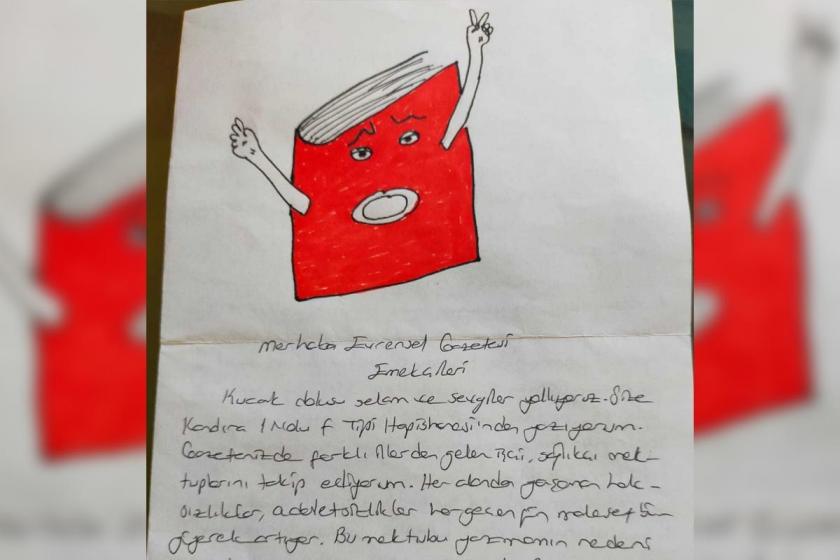 merhaba Evrensel Gazetesi
Emekçileri
Kucak dolusu selam ve sevgiler yolluyoruz. Size
Kandıra 1 Nolu F Tipi Hapishanesi'nden yazıyorum.
Gazetenizde farklı illerden gelen işçi, sağlıkçı mek-
tuplarını takip ediyorum. Her alanda yaşanan hak-
sızlıklar, adaletsizlikler her geçen gün malesef
artıyor. Bu mektubu yazmamın nedeni